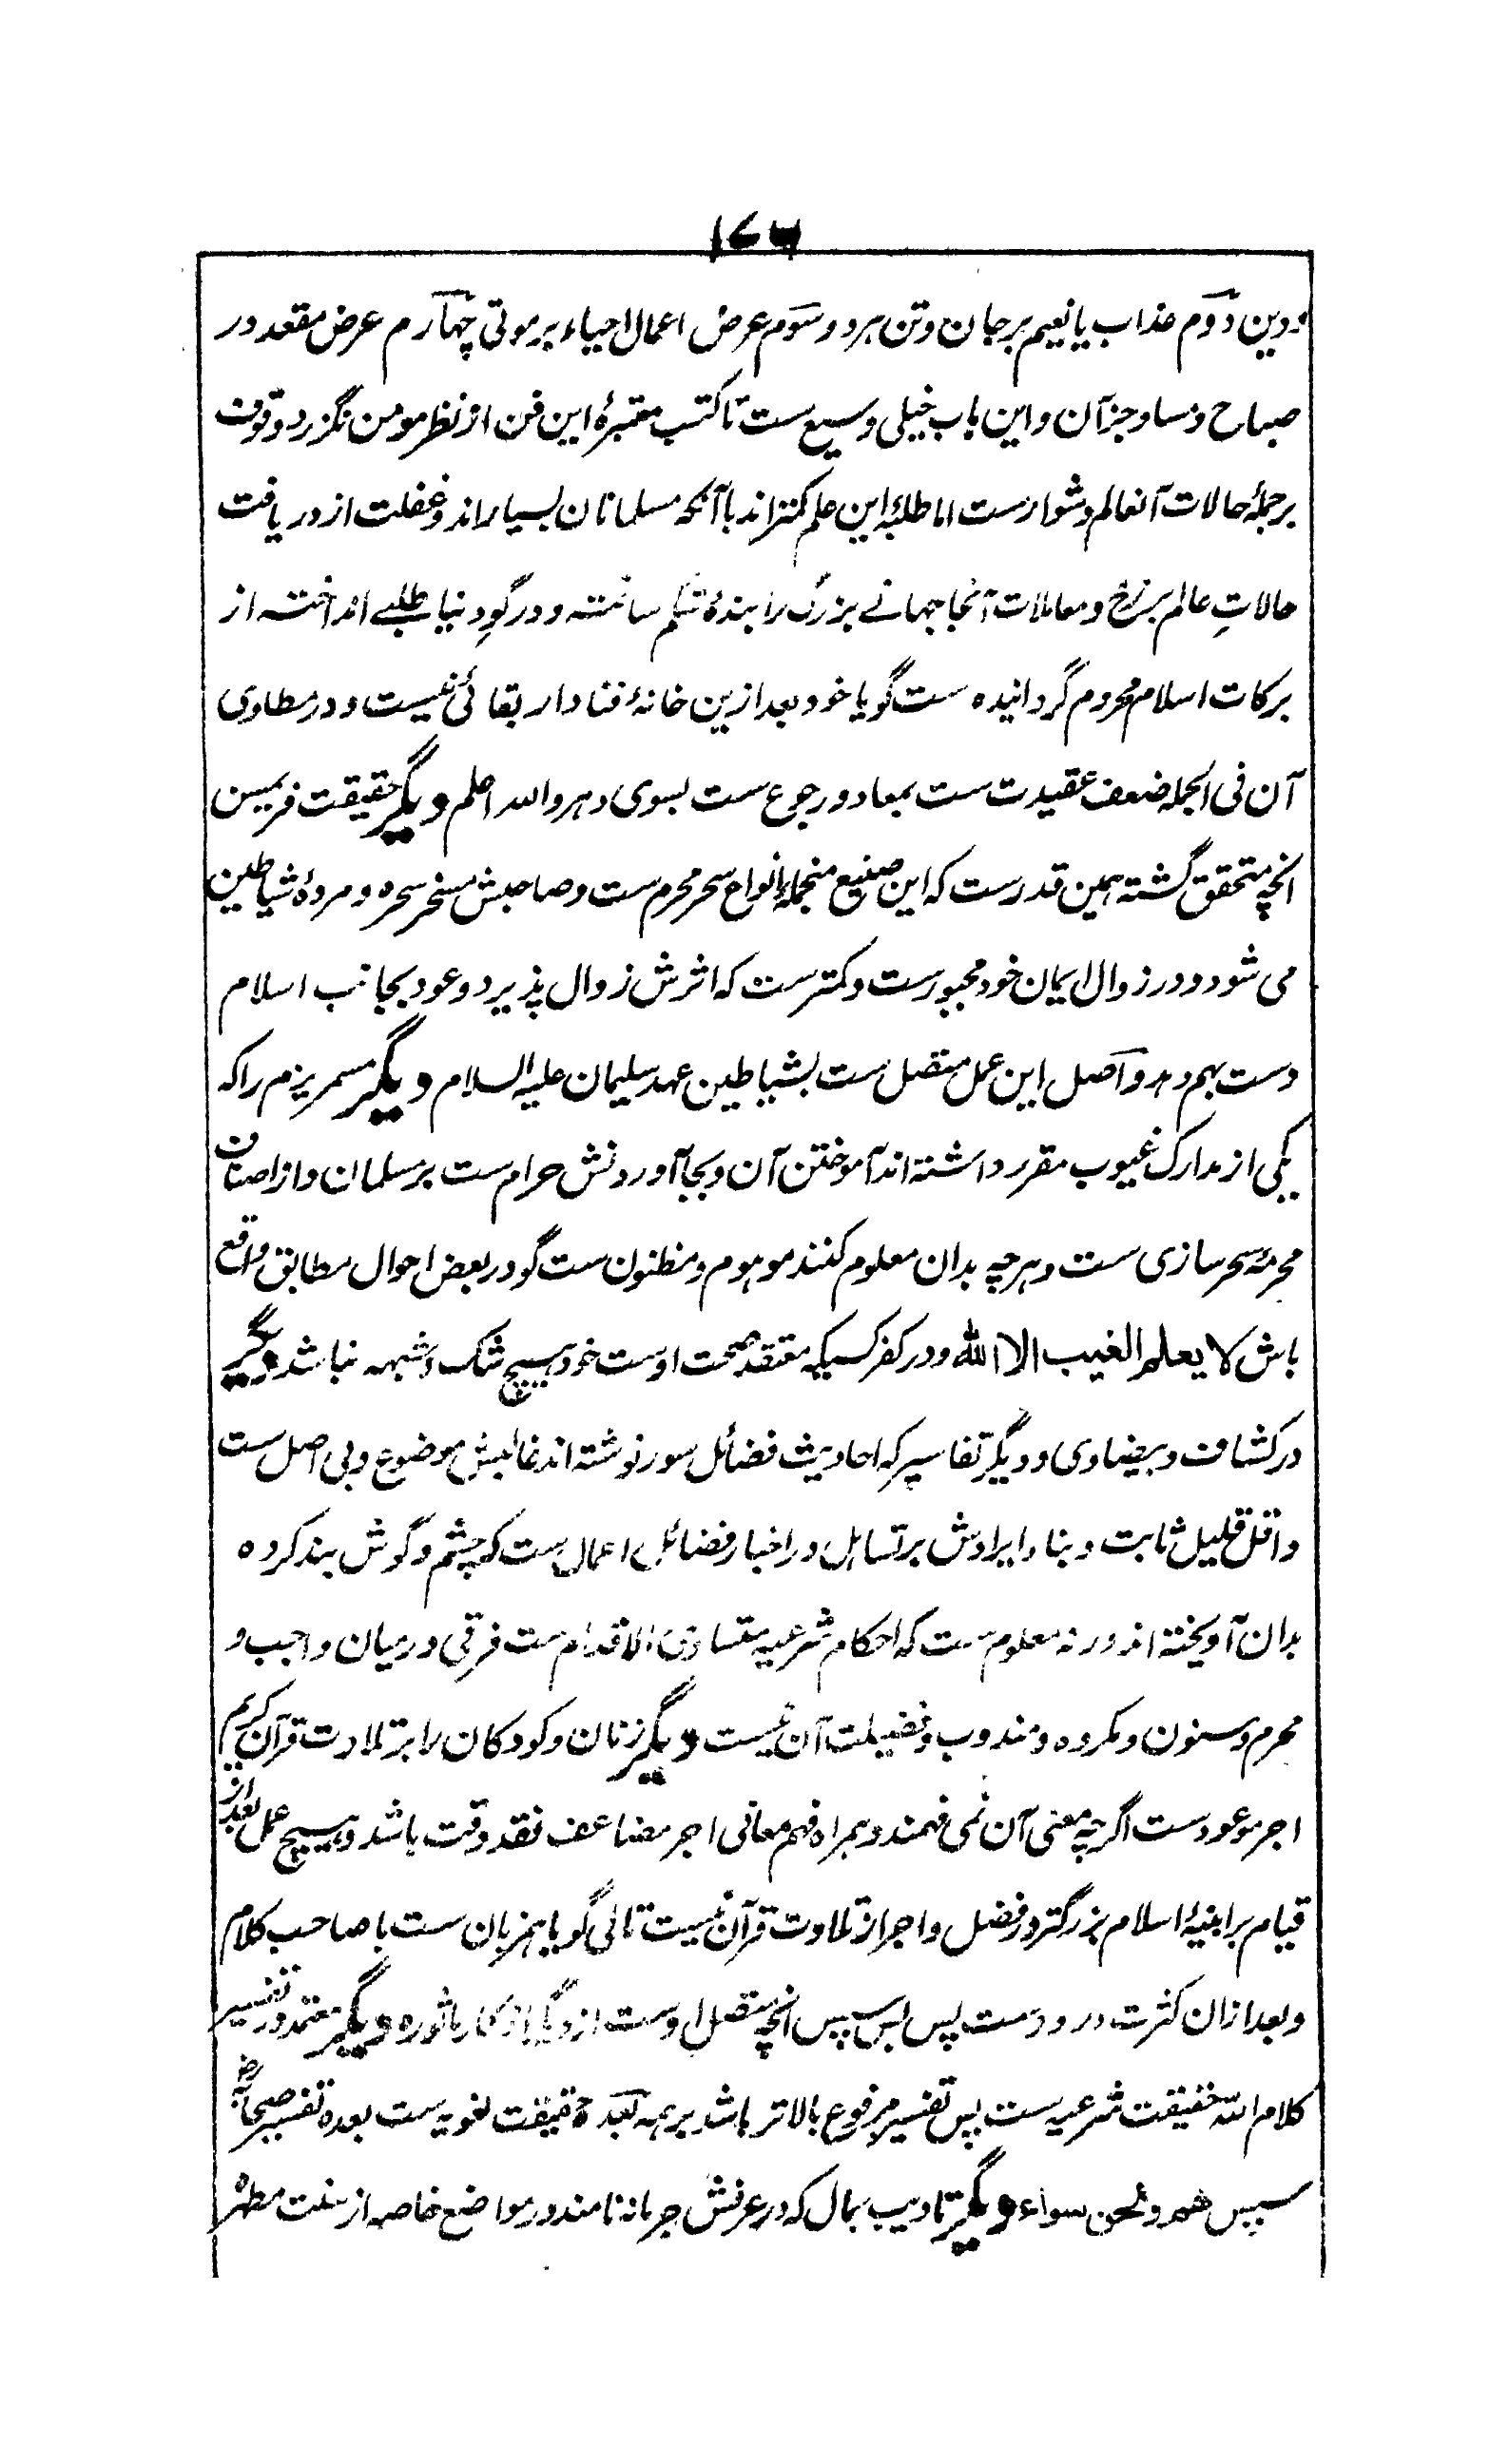 ۱۷۶
ودین دوم عذاب یا نعیم بر جان وتن هر دو سوم عرض اعمال احیاء بر موتی چهارم عرض مقعد در
صباح ومسا وجز آن واین باب خیلی وسیع ست تا کتب معتبرهٔ این فن از نظر مومن نگزرد وقوف
بر جملهٔ حالات آنعالم دشوارست اما طلبهٔ این علم کمتراند با آنکه مسلمانان بسیاراند وغفلت از دریافت
حالاتِ عالم برزخ ومعاملات آنجا جهانے بزرگ را بندهٔ شکم ساخته ودر گوِ دنیا طلبے انداخته از
برکات اسلام محروم گردانیده ست گویا خود بعد ازین خانهٔ فنا دار بقائی نیست ودر مطاوی
آن فی الجمله ضعف عقیدت ست بمعاد ورجوع ست بسوی دهر والله اعلم دیگر حقیقت فریمیسن
انچه متحقق گشته همین قدرست که این صنیع منجمله انواع سحر محرم ست وصاحبش مسخر سحره ومردهٔ شیاطین
می شود ودر زوال ایمان خود مجبورست وکمترست که اثرش زوال پذیرد وعود بجانب اسلام
دست بهم دهد واصل این عمل متصل ست بشیاطین عهد سلیمان علیه السلام دیگر مسمریزم را که
یکی از مدارک غیوب مقرر داشته اند آموختن آن وبجا آوردنش حرام ست بر مسلمان واز اصناف
محرمهٔ سحرسازی ست وهرچه بدان معلوم کنند موهوم ومظنون ست گو در بعض احوال مطابق واقع
باش لا یعلم الغیب الا الله ودر کفر کسیکه معتقد صحت اوست خود هیچ شک وشبهه نباشد دیگر
در کشاف وبیضاوی ودیگر تفاسیر که احادیث فضائل سور نوشته اند غالبش موضوع وبی اصل ست
واقل قلیل ثابت وبناء ایرادش بر تساهل در اخبار فضائل اعمال ست که چشم وگوش بند کرده
بدان آویخته اند ورنه معلوم ست که احکام شرعیه متساوی الاقدام ست فرقی درمیان واجب و
محرم ومسنون ومکروه ومندوب وفضیلت آن نیست دیگر زنان وکودکان را بر تلاوت قرآن کریم
اجر موعودست اگرچه معنی آن نمی فهمند وهمراه فهم معانی اجر مضاعف نقد وقت باشد وهیچ عمل بعد از
قیام بر ابنیهٔ اسلام بزرگتر در فضل واجر از تلاوت قرآن نیست تالی گویا همزبان ست با صاحب کلام
وبعد ازان کثرت درودست پس پس سپس انچه متصل اوست از دیگر اذکار ماثوره دیگر معتمد در تفسیر
کلام الله حقیقت شرعیه ست پس تفسیر مرفوع بالاتر باشد بر همه بعد حقیقت لغویه ست بعده تفسیر صحابهؓ
سپس هم ونحن سواء دیگر تادیب بمال که در عرفش جرمانه نامند در مواضع خاصه از سنت مطهره